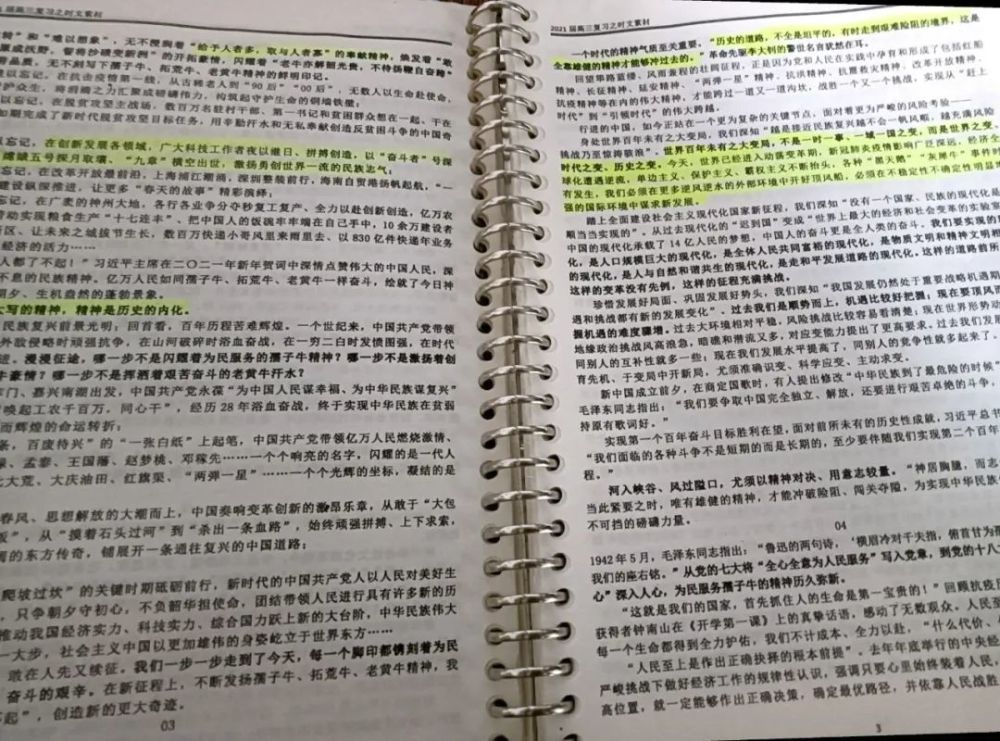 届高三复习之时文素材
和“难以想象”，无不浸润着“给予人者多，取与人者寡”的奉献精神，焕发着“敢
原成沃野，誓将沙碛变新洲”的开拓豪情，闪耀着“老牛亦解韶光贵，不待扬鞭自奋蹄”
骨品质，无不刻写下孺子牛、拓荒牛、老黄牛精神的鲜明印记。
以忘记，在抗击疫情第一线，从古稀老人到“90后”“00后”，无数人以生命赴使命，
护众生，将涓滴之力汇聚成磅礴伟力，构筑起守护生命的铜墙铁壁；
以忘记，在脱贫攻坚主战场，数百万名驻村干部、第一书记和贫困群众想在一起、干在
如期完成了新时代脱贫攻坚目标任务，用辛勤汗水和无私奉献创造反贫困斗争的中国奇
忘记，在创新发展各领域，广大科技工作者夜以继日、拼搏创造，以“奋斗者”号深
嫦娥五号探月取壤、“九章”横空出世，激扬勇创世界一流的民族志气；
忘记，在改革开放最前沿，上海浦江潮涌，深圳整装前行，海南自贸港扬帆起航，“一
建设纵深推进，让更多“春天的故事”精彩演绎；
忘记，在广袤的神州大地，各行各业争分夺秒复工复产、全力以赴创新创造，亿万农
劳动实现粮食生产“十七连丰”、把中国人的饭碗牢牢端在自己手中，10余万建设者
区、让未来之城拔节生长，数百万快递小哥风里来雨里去、以830亿件快递年业务
经济的活力……
人都了不起！”习近平主席在二〇二一年新年贺词中深情点赞伟大的中国人民，深
不息的民族精神。亿万人民如同孺子牛、拓荒牛、老黄牛一样奋斗，绘就了今日神
朝夕、生机盎然的蓬勃景象。
大写的精神，精神是历史的内化。
民族复兴前景光明；回首看，百年历程苦难辉煌。一个世纪来，中国共产党带领
外敌侵略时顽强抗争，在山河破碎时浴血奋战，在一穷二白时发愤图强，在时代
进。漫漫征途，哪一步不是闪耀着为民服务的孺子牛精神？哪一步不是激扬着创
牛豪情？哪一步不是挥洒着艰苦奋斗的老黄牛汗水？
门、嘉兴南湖出发，中国共产党永葆“为中国人民谋幸福、为中华民族谋复兴”
唤起工农千百万，同心干”，经历28年浴血奋战，终于实现中华民族在贫弱
而辉煌的命运转折；
条，百废待兴”的“一张白纸”上起笔，中国共产党带领亿万人民燃烧激情、
、孟泰、王国藩、赵梦桃、邓稼先……一个个响亮的名字，闪耀的是一代人
北大荒、大庆油田、红旗渠、“两弹一星”……一个个光辉的坐标，凝结的是
春风、思想解放的大潮而上，中国奏响变革创新的激昂乐章，从敢于“大包
”，从“摸着石头过河”到“杀出一条血路”，始终顽强拼搏、上下求索，
的东方传奇，铺展开一条通往复兴的中国道路；
爬坡过坎”的关键时期砥砺前行，新时代的中国共产党人以人民对美好生
，只争朝夕守初心，不负韶华担使命，团结带领人民进行具有许多新的历
推动我国经济实力、科技实力、综合国力跃上新的大台阶，中华民族伟大
一大步，社会主义中国以更加雄伟的身姿屹立于世界东方……
敢在人先又续征。我们一步一步走到了今天，每一个脚印都镌刻着为民
奋斗的艰辛。在新征程上，不断发扬孺子牛、拓荒牛、老黄牛精神，我
起”，创造新的更大奇迹。
03
2021届高三复习之时文素材
一个时代的精神气质至关重要。“历史的道路，不全是坦平的，有时走到艰难险阻的境界，这是
全靠雄健的精神才能够冲过去的。”革命先驱李大钊的警世名言犹然在耳。
回望筚路蓝缕、风雨兼程的壮阔征程，正是因为党和人民在实践中孕育和形成了包括红船
精神、长征精神、延安精神、“两弹一星”精神、抗洪精神、抗震救灾精神、改革开放精神、
抗疫精神等在内的伟大精神，才能跨过一道又一道沟坎，战胜一个又一个挑战，实现从“赶上
时代”到“引领时代”的伟大跨越。
行进的中国，如今正站在一个更为复杂的关键节点，面对着更为严峻的风险考验——
身处世界百年未有之大变局，我们深知“越是接近民族复兴越不会一帆风顺，越充满风险
挑战乃至惊涛骇浪”。世界百年未有之大变局，不是一时一事、一域一国之变，而是世界之变、
时代之变、历史之变。今天，世界已经进入动荡变革期，新冠肺炎疫情影响广泛深远，经济全
球化遭遇逆流，单边主义、保护主义、霸权主义不断抬头，各种“黑天鹅”“灰犀牛”事件时
有发生，我们必须在更多逆风逆水的外部环境中开好顶风船，必须在不稳定性不确定性明显增
强的国际环境中谋求新发展。
踏上全面建设社会主义现代化国家新征程，我们深知“没有一个国家、民族的现代化是
顺当当实现的”。从过去现代化的“迟到国”变成“世界上最大的经济和社会变革的实验室
中国的现代化承载了14亿人民的梦想，中国人的奋斗更是全人类的奋斗。我们要实现的
化，是人口规模巨大的现代化，是全体人民共同富裕的现代化，是物质文明和精神文明相
的现代化，是人与自然和谐共生的现代化，是走和平发展道路的现代化。这样的道路前所
这样的变革没有先例，这样的征程充满挑战。
珍惜发展好局面、巩固发展好势头，我们深知“我国发展仍然处于重要战略机遇期
遇和挑战都有新的发展变化”。过去我们是顺势而上，机遇比较好把握；现在要顶风而
握机遇的难度骤增。过去大环境相对平稳，风险挑战比较容易看清楚；现在世界形势动
地缘政治挑战风高浪急，暗礁和潜流又多，对应变能力提出了更高要求。过去我们发展
同别人的互补性就多一些；现在我们发展水平提高了，同别人的竞争性就多起来了。
育先机、于变局中开新局，尤须准确识变、科学应变、主动求变。
新中国成立前夕，在商定国歌时，有人提出修改“中华民族到了最危险的时候”
毛泽东同志指出：“我们要争取中国完全独立、解放，还要进行艰苦卓绝的斗争，
持原有歌词好。”
实现第一个百年奋斗目标胜利在望，面对前所未有的历史性成就，习近平总书
“我们面临的各种斗争不是短期的而是长期的，至少要伴随我们实现第二个百年
程。”
河入峡谷、风过隘口，尤须以精神对决、用意志较量。“神居胸臆，而志
当此紧要之时，唯有雄健的精神，才能冲破险阻、闯关夺隘，为实现中华民族
不可挡的磅礴力量。
04
1942年5月，毛泽东同志指出：“鲁迅的两句诗，‘横眉冷对千夫指，俯首甘为孺
我们的座右铭。”从党的七大将“全心全意为人民服务”写入党章，到党的十八
心”深入人心，为民服务孺子牛的精神历久弥新。
“这就是我们的国家，首先抓住人的生命是第一宝贵的！”回顾抗疫
获得者钟南山在《开学第一课》上的真挚话语，感动了无数观众。人民至
每一个生命都得到全力护佑，我们不计成本、全力以赴，“什么代价、
“人民至上是作出正确抉择的根本前提”。去年年底举行的中央经
严峻挑战下做好经济工作的规律性认识，强调只要心里始终装着人民、
高位置，就一定能够作出正确决策，确定最优路径，并依靠人民战胜
3